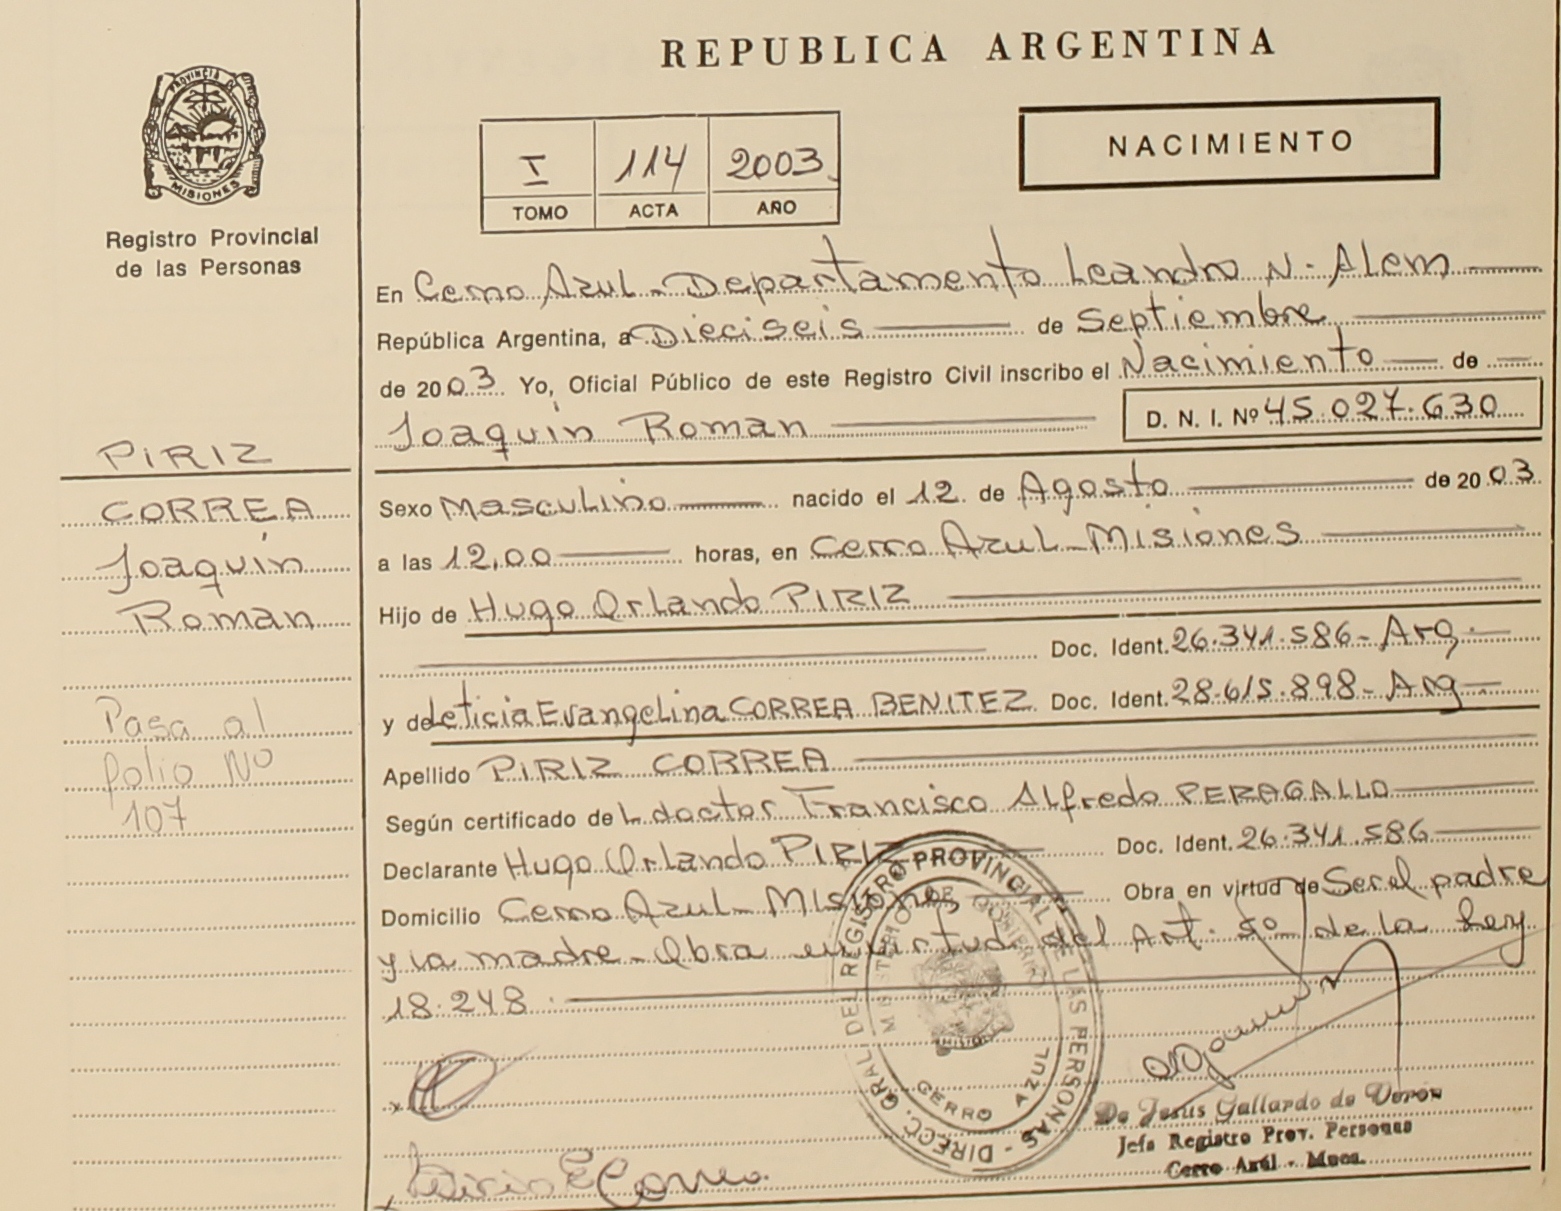 REPUBLICA ARGENTINA
PROVINCIA DE
MISIONES
Registro Provincial
de las Personas
I 114 2003
TOMO ACTA AÑO
NACIMIENTO
En Cerro Azul - Departamento Leandro N. Alem
República Argentina, a Dieciseis de Septiembre
de 2003. Yo, Oficial Público de este Registro Civil inscribo el Nacimiento de
Joaquin Roman D. N. I. Nº 45.027.630
PIRIZ
CORREA
Joaquin
Roman
Pasa al
folio Nº
107
Sexo Masculino nacido el 12 de Agosto de 2003
a las 12,00 horas, en Cerro Azul - Misiones
Hijo de Hugo Orlando PIRIZ
Doc. Ident. 26.341.586 - Arg.
y de Leticia Evangelina CORREA BENITEZ Doc. Ident. 28.615.898 - Arg
Apellido PIRIZ CORREA
Según certificado del doctor Francisco Alfredo PERAGALLO
Declarante Hugo Orlando PIRIZ Doc. Ident. 26.341.586
Domicilio Cerro Azul - Misiones Obra en virtud de Ser el padre
y la madre - Obra en virtud del Art. 5º de la Ley
18.248.
DIRECC. GRAL. DEL REGISTRO PROVINCIAL DE LAS PERSONAS -
MINISTERIO DE GOBIERNO
CERRO AZUL
De Jesús Gallardo de Verón
Jefa Registro Prov. Personas
Cerro Azúl - Mnes.